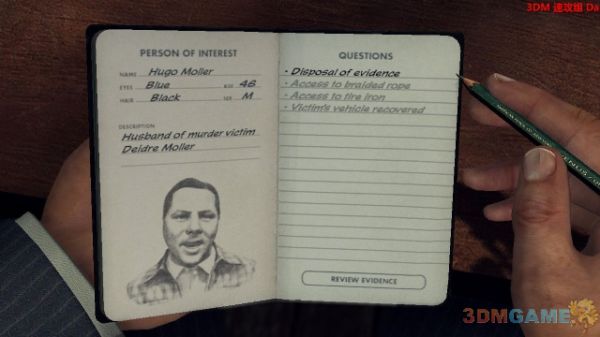 3DM 速攻组 Da
PERSON OF INTEREST
NAME Hugo Moller
EYES Blue AGE 46
HAIR Black SEX M
DESCRIPTION
Husband of murder victim
Deidre Moller
QUESTIONS
· Disposal of evidence
· Access to braided rope
· Access to tire iron
· Victim's vehicle recovered
REVIEW EVIDENCE
3DMGAME